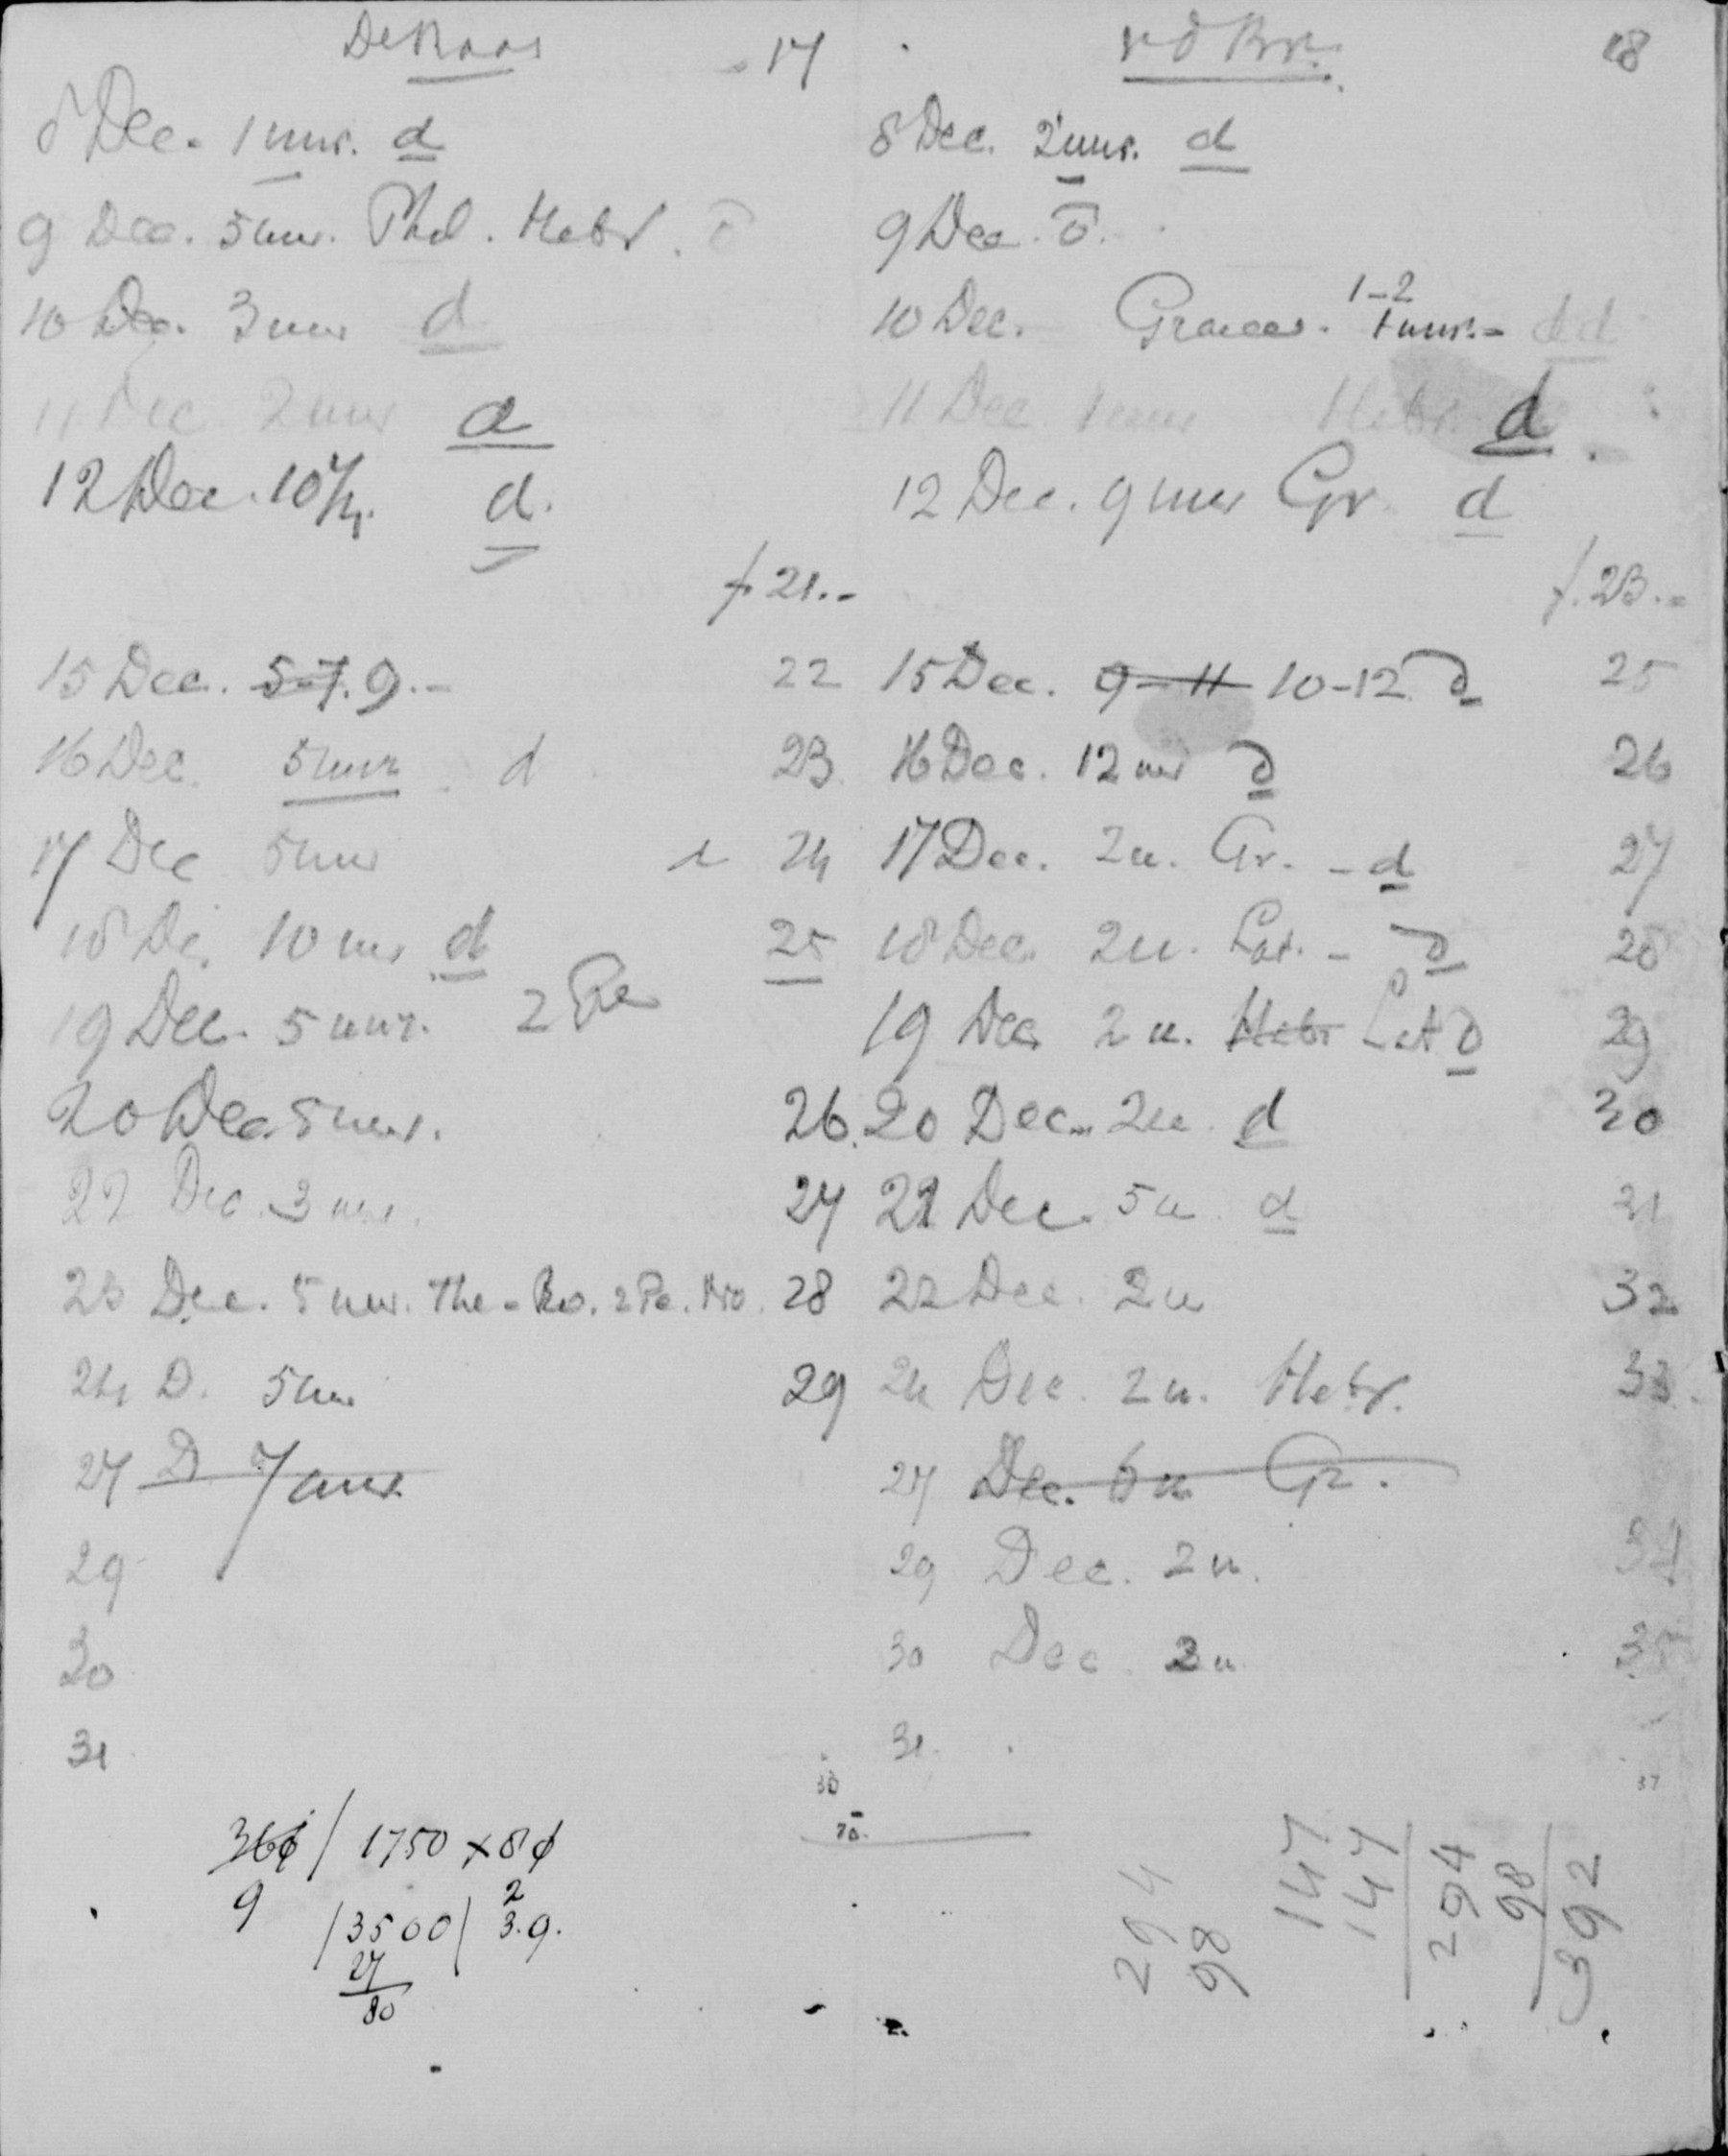 De Roos 17
v d Br. 18
8 Dec. 1 uur. d
9 Dec. 5 uur. Phil. Hebr. d
10 Dec. 3 uur d
11 Dec 2 uur d
12 Dec. 10 1/4. d.
f. 21.-
15 Dec. 5-7. 9.- 22
16 Dec. 5 uur d 23
17 Dec 5 uur 24
18 De. 10 uur d 25
19 Dec. 5 uur. 2 Pe
20 Dec. 5 uur. 26.
22 Dec. 3 uur. 27
23 Dec. 5 uur. The - Ro. 2 Pe. 28
24 D. 5 uur 29
27 D 7 uur
29
30
31
8 Dec. 2 uur. d
9 Dec. d.
10 Dec. Graece. 1-2 1 uur.- d d
11 Dec 1 uur Hebr. d
12 Dec. 9 uur Gr. d
f. 23.-
15 Dec. 9-11 10-12 d 25
16 Dec. 12 uur d 26
17 Dec. 2 u. Gr. - d 27
18 Dec. 2 u. Lat. - d 28
19 Dec 2 u. Hebr Lat d 29
20 Dec. 2 u. d 30
21 Dec. 5 u d 31
22 Dec. 2 u 32
24 Dec. 2 u. Hebr. 33
27 Dec. 6 u Gr.
29 Dec. 2 u. 34
30 Dec. 2 u 35
31.
37
366 / 1750 x 8
9 /3500/ 3.9.
2
27
80
294
98
147
147
294
98
392